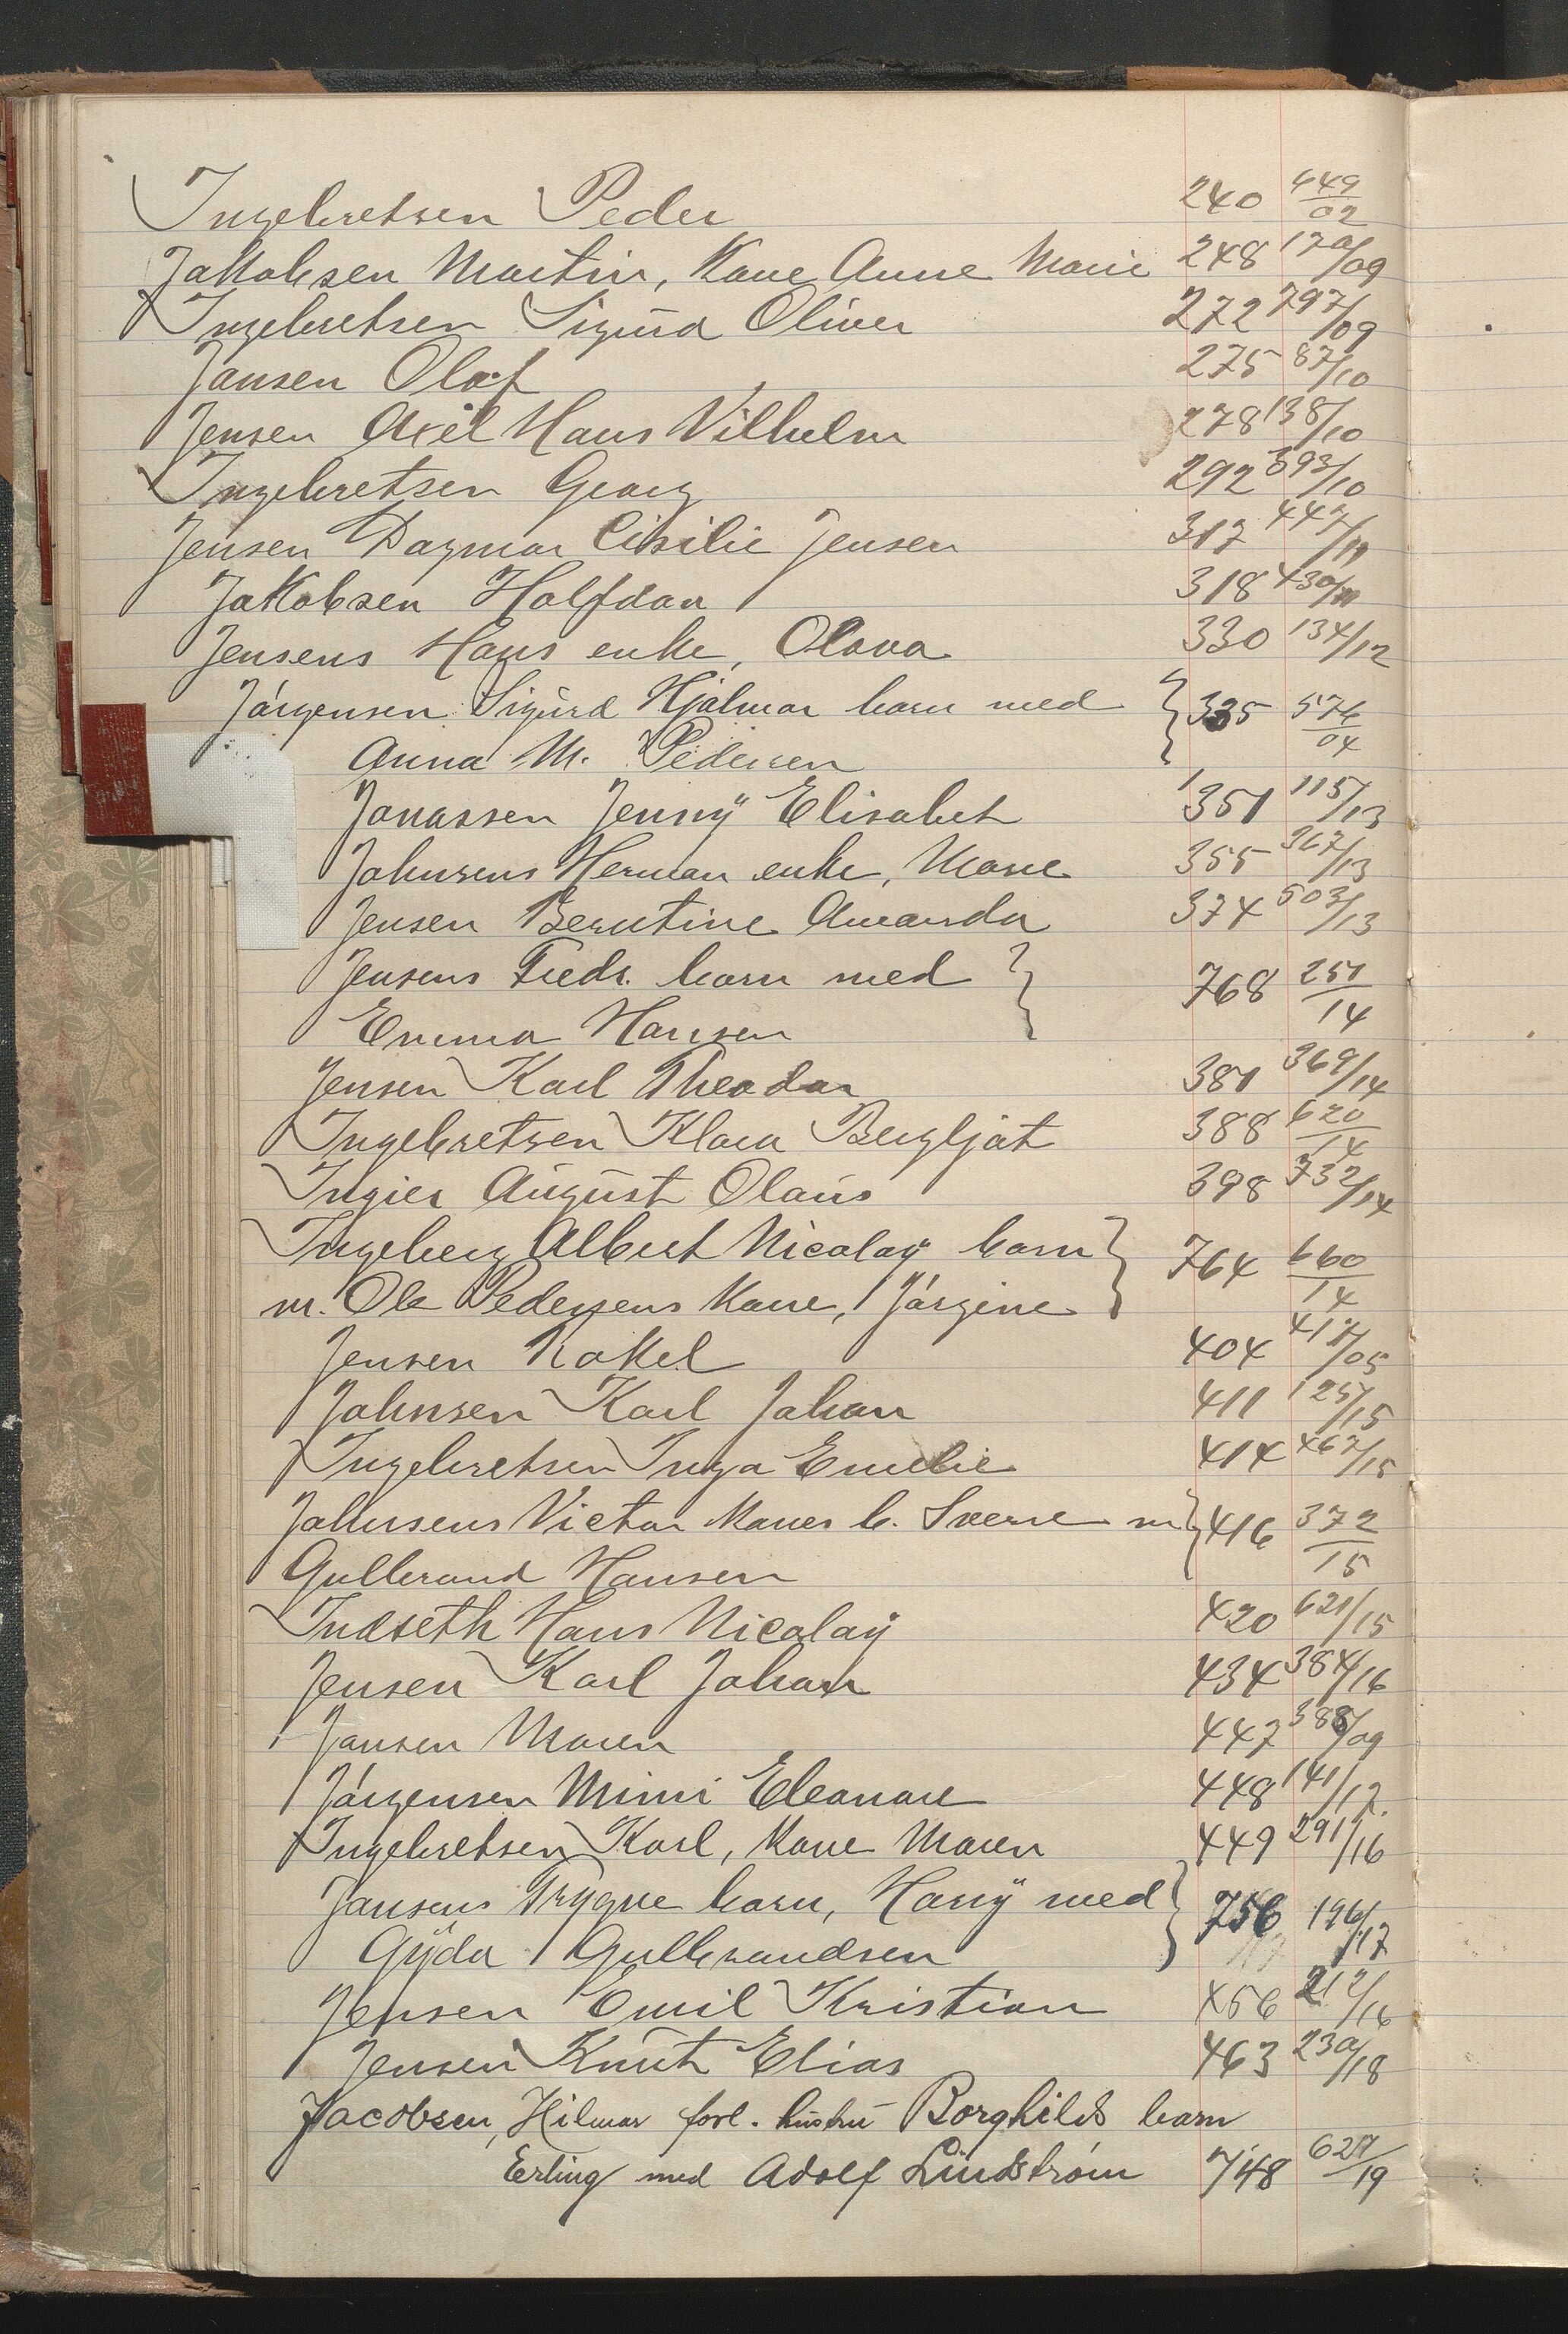 Ingebretsen Peder 240 649/02
Jakobsen Martin, Kone Anne Marie 248 170/09
Ingebretsen Sigurd Oliver 272 797/09
Jansen Olaf 275 87/10
Jensen Axel Hans Vilhelm 278 138/10
Ingebretsen Georg 292 393/10
Jensen Dagmar Cisilie Jensen 317 447/11
Jakobsen Halfdan 318 430/11
Jensens Hans enke, Olava 330 134/12
Jørgensen Sigurd Hjalmar barn med } 335 576/04
Anna M. Pedersen
Jonassen Jenny Elisabet 351 115/13
Johnsens Herman enke, Marie 355 367/13
Jensen Berntine Amanda 374 503/13
Jensens Fredr. barn med } 768 251/14
Emma Hansen
Jensen Karl Theodor 381 369/14
Ingebretsen Klara Bergljot 388 620/14
Ingier August Olaus 398 732/14
Ingeberg Albert Nicolay barn } 764 660/14
m. Ole Pedersens Kone, Jørgine
Jensen Rakel 404 417/05
Johnsen Karl Johan 411 125/15
Ingebretsen Inga Emelie 414 467/15
Johnsens Victor Kones b. Sverre m } 416 372/15
Gulbrand Hansen
Indseth Hans Nicolay 420 621/15
Jensen Karl Johan 434 384/16
Jansen Maren 447 388/09
Jørgensen Mimi Eleonore 448 141/12
Ingebretsen Karl, Kone Maren 449 291/16
Jansens Trygve barn, Harry med } 756 196/17
Gyda Gulbrandsen
Jensen Emil Kristian 456 212/16
Jensen Knut Elias 463 230/18
Jacobsen, Hilmar forl. hustru Borghilds barn
Erling med Adolf Lindstrøm 748 627/19